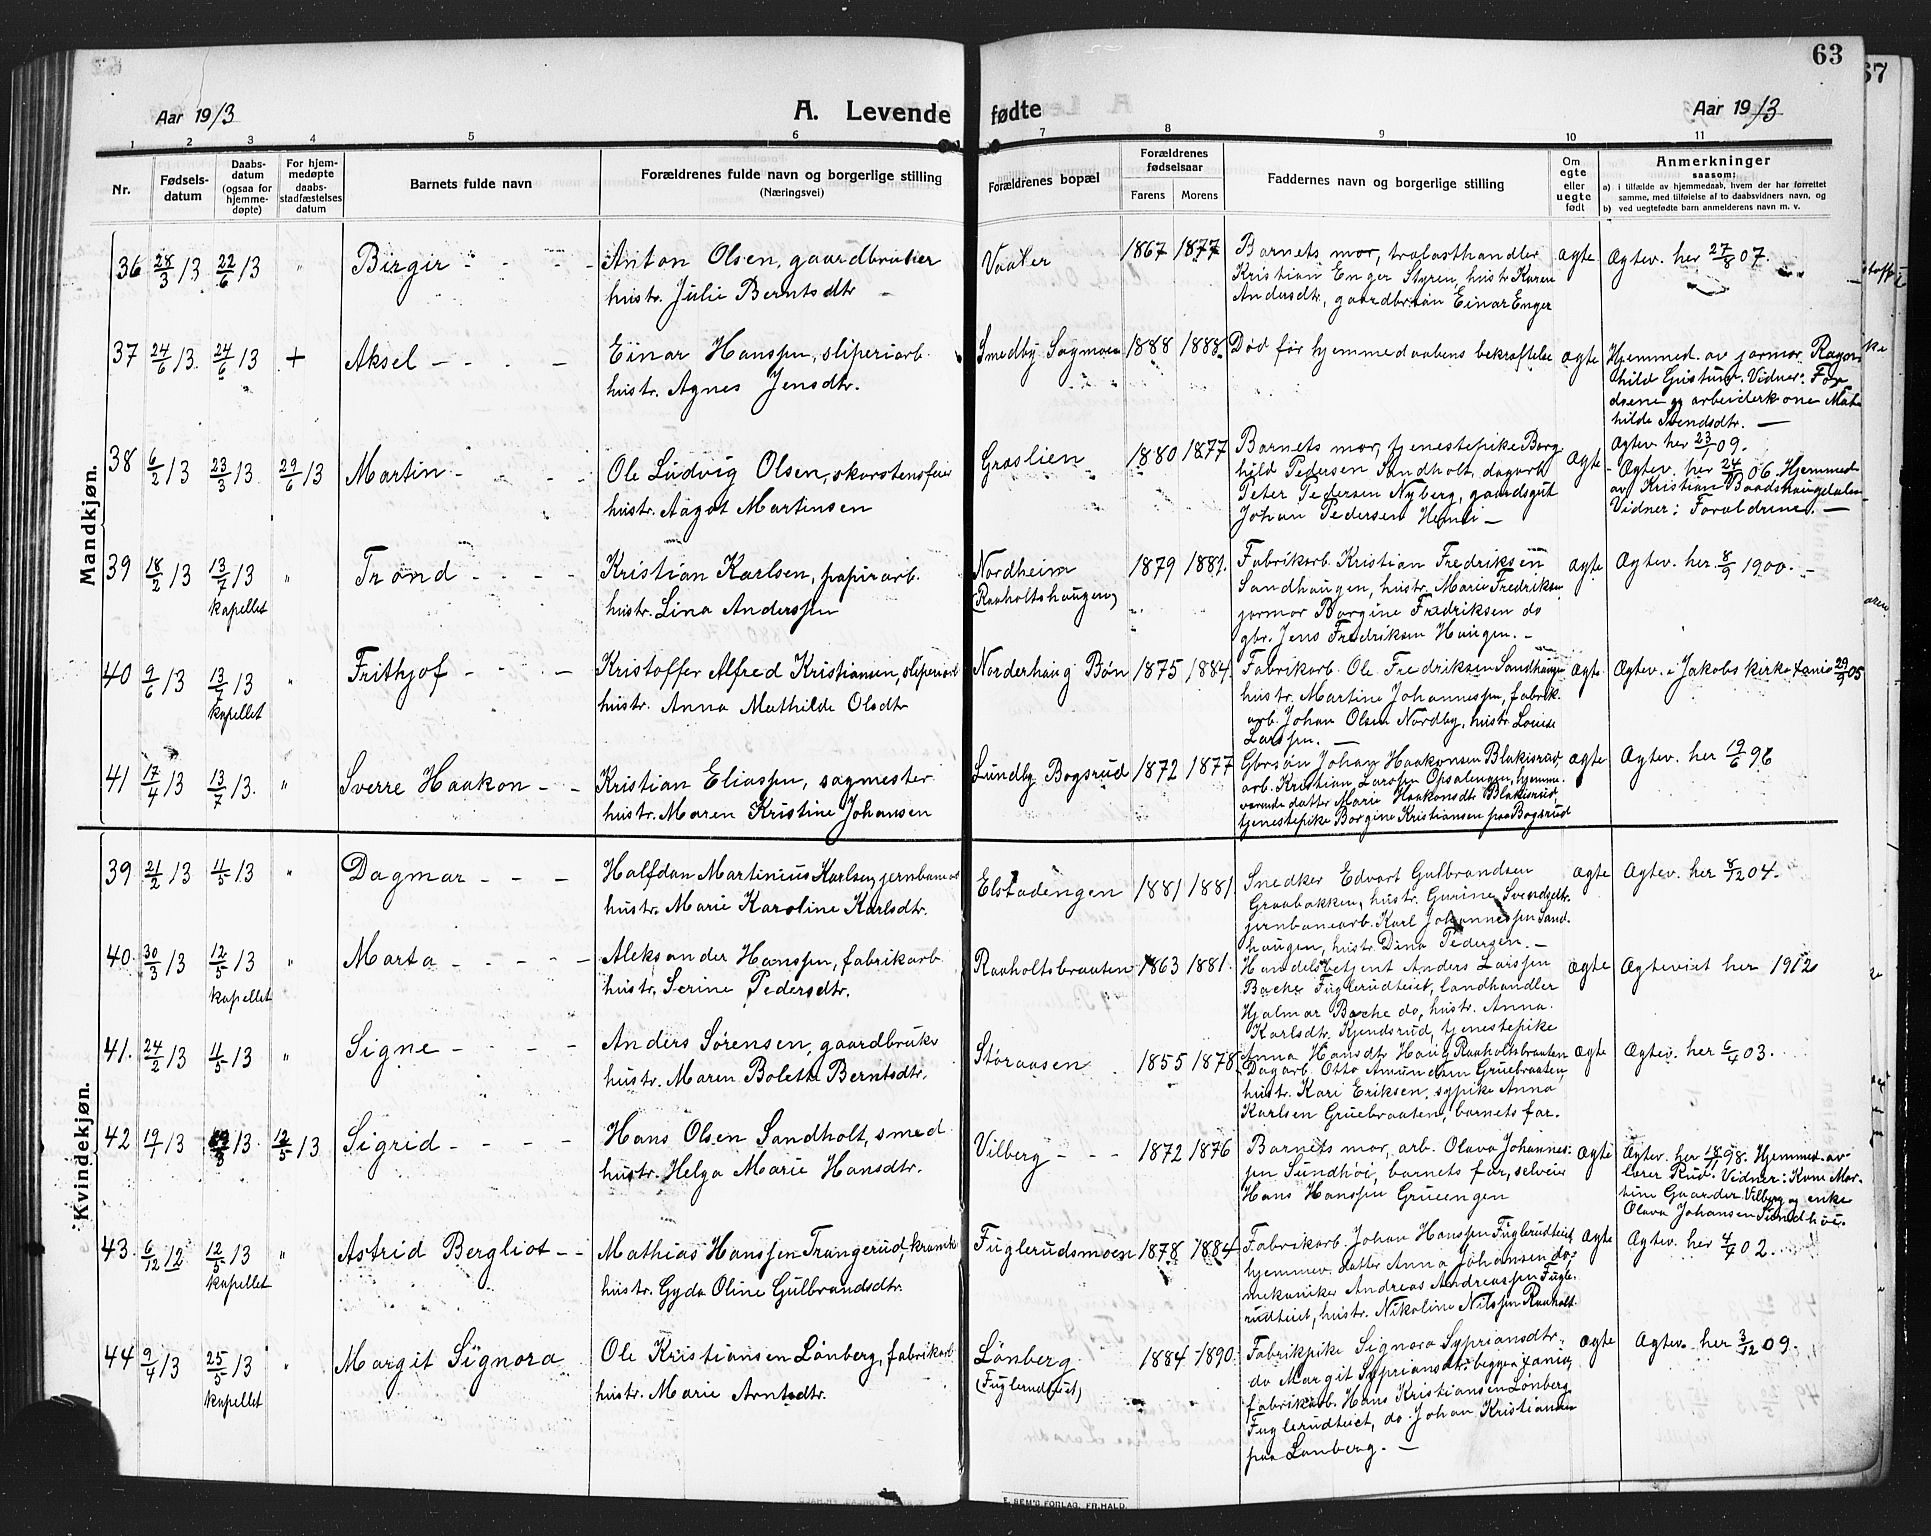 63
Aar 1913
A. Levende fødte
Aar 1913
1 2 3 4 5 6 7 8 9 10 11
Nr.
Fødsels-
datum
Daabs-
datum
(ogsaa for
hjemme-
døpte)
For hjem-
medøpte
daabs-
stadfæstelses
datum
Barnets fulde navn
Forældrenes fulde navn og borgerlige stilling
(Næringsvei)
Forældrenes bopæl
Forældrenes
fødselsaar
Farens Morens
Faddernes navn og borgerlige stilling
Om
egte
eller
uegte
født
Anmerkninger
saasom:
a) i tilfælde av hjemmedaab, hvem der har forrettet
samme, med tilføielse av to daabsvidners navn, og
b) ved uegtefødte barn anmelderens navn m. v.
Mandkjøn.
36 28/3 13 22/6 13 " Birgir
Anton Olsen, gaardbruker
hustr. Julie Berntsdtr
Vaaler 1867 1877
Barnets mor, trælasthandler
Kristian Enger Styren, hustr. Karen
Andersdtr, gaardbrsøn Einar Enger
ægte
Ægtev. her 27/8 07.
37 24/6 13 24/6 13 + Aksel
Einar Hanssen, sliperiarb.
hustr. Agnes Jensdtr.
Smedby Sagmoen 1888 1888
Død før hjemmedaabens bekræftelse
ægte
Hjemmed. av jormor Ragn
hild Gistum. Vidner: For
ældrene og arbeiderkone Mat
hilde Svendsdtr.
Ægtev. her 23/1 09.
38 6/2 13 23/3 13 29/6 13 Martin
Ole Ludvig Olsen, skorstensfeier
hustr. Aagot Martinsen
Graslien 1880 1877
Barnets mor, tjenestepike Borg
hild Pedersen Sandholt, dagarb
Peter Pedersen Nyberg, gaardsgut
Johan Pedersen Hemli
ægte
Ægtev. her 24/11 06. Hjemmed
av Kristian Baadshaugdalen
Vidner: Forældrene.
39 18/2 13 13/7 13 kapellet " Trond
Kristian Karlsen, papirarb.
hustr. Lina Anderssen
Nordheim
(Raaholtshaugen)
1879 1881.
Fabrikarb. Kristian Fredriksen
Sandhaugen, hustr. Marie Fredriksen
jormor Borgine Fredriksen do
gbr. Jens Fredriksen Haugen.
ægte
Ægtev. her 8/9 1900.
40 9/6 13 13/7 13 kapellet " Frithjof
Kristoffer Alfred Kristiansen, sliperiarb
hustr. Anna Mathilde Olsdtr
Norderhaug Bøn 1875 1884
Fabrikarb. Ole Fredriksen Sandhaugen
hustr. Martine Johannessen, fabrik
arb. Johan Olsen Nordby, hustr. Louise
Larssen.
ægte
Ægtev. i Jakobs kirke Xania 29/9 05
41 17/4 13 13/7 13. " Sverre Haakon
Kristian Eliassen, sagmester
hustr. Maren Kristine Johansen
Lundby Bogsrud 1872 1877
Gbrsøn Johan Haakonsen Blakisrud,
arb. Kristian Larssen Opsalengen, hjemme
værende datter Marie Haakonsdtr Blakisrud,
tjenestepike Borgine Kristiansen paa Bogsrud
ægte
Ægtev. her 19/6 96
Kvindekjøn.
39 21/2 13 4/5 13 " Dagmar
Halfdan Martinius Karlsen, jernbanearb
hustr. Marie Karoline Karlsdtr.
Elstadengen 1881 1881.
Snedker Edvart Gulbrandsen
Graabakken, hustr. Gurine Svendsdtr.
jernbanearb. Karl Johannessen Sand-
haugen, hustr. Dina Pedersen.
ægte
Ægtev. her 8/12 04.
40. 30/3 13 12/5 13 kapellet " Marta
Aleksander Hanssen, fabrikarb
hustr. Serine Pedersdtr.
Raaholtsbraaten 1863 1881.
Handelsbetjent Anders Larssen
Bache Fuglerudteiet, landhandler
Hjalmar Bache do, hustr. Anna
Karlsdtr. Kjendsrud, tjenestepike
Anna Hansdtr Haug Raaholtsbraaten
ægte
Ægteviet her 1912
41. 24/2 13 4/5 13 " Signe
Anders Sørensen, gaardbruker
hustr. Maren Bolette Berntsdtr.
Støraasen 1855 1878
Dagarb. Otto Amundsen Gruebraaten,
hustr. Kari Eriksen, sypike Anna
Karlsen Gruebraaten, barnets far.
ægte
Ægtev. her 6/4 03.
42 19/1 13 13. 12/5 13 Sigrid
Hans Olsen Sandholt, smed
hustr. Helga Marie Hansdtr.
Vilberg 1872 1876
Barnets mor, arb. Olava Johannes-
sen Sundhøi, barnets far, selveier
Hans Hanssen Grueengen
ægte
Ægtev. her 18/11 98. Hjemmed. av
lærer Rud. Vidner: Kone Mar-
tine Gaarder Vilberg og enke
Olava Johansen Sundhøi.
43. 6/12 12 12/5 13 kapellet " Astrid Bergliot
Mathias Hanssen Trangerud, kramh
hustr. Gyda Oline Gulbrandsdtr.
Fuglerudsmoen 1878 1884
Fabrikarb. Johan Hanssen Fuglerudteiet
hjemmev. datter Anna Johansen do,
mekaniker Andreas Andreassen Fugle-
rudteiet, hustr. Nikoline Nilssen Raaholt.
ægte
Ægtev. her 4/7 02.
44 9/4 13 25/5 13 kapellet " Margit Signora
Ole Kristiansen Lønberg, fabrikarb
hustr. Marie Arntsdtr.
Lønberg
(Fuglerudteiet)
1884 1890.
Fabrikpike Signora Sypriansdtr.
do Margit Sypriansdtr. begge Xania
fabrikarb. Hans Kristiansen Lønberg
Fuglerudteiet, do Johan Kristiansen
paa Lønberg.
ægte
Ægtev. her 3/12 09.
E. SEM'S FORLAG, FR.HALD.
67